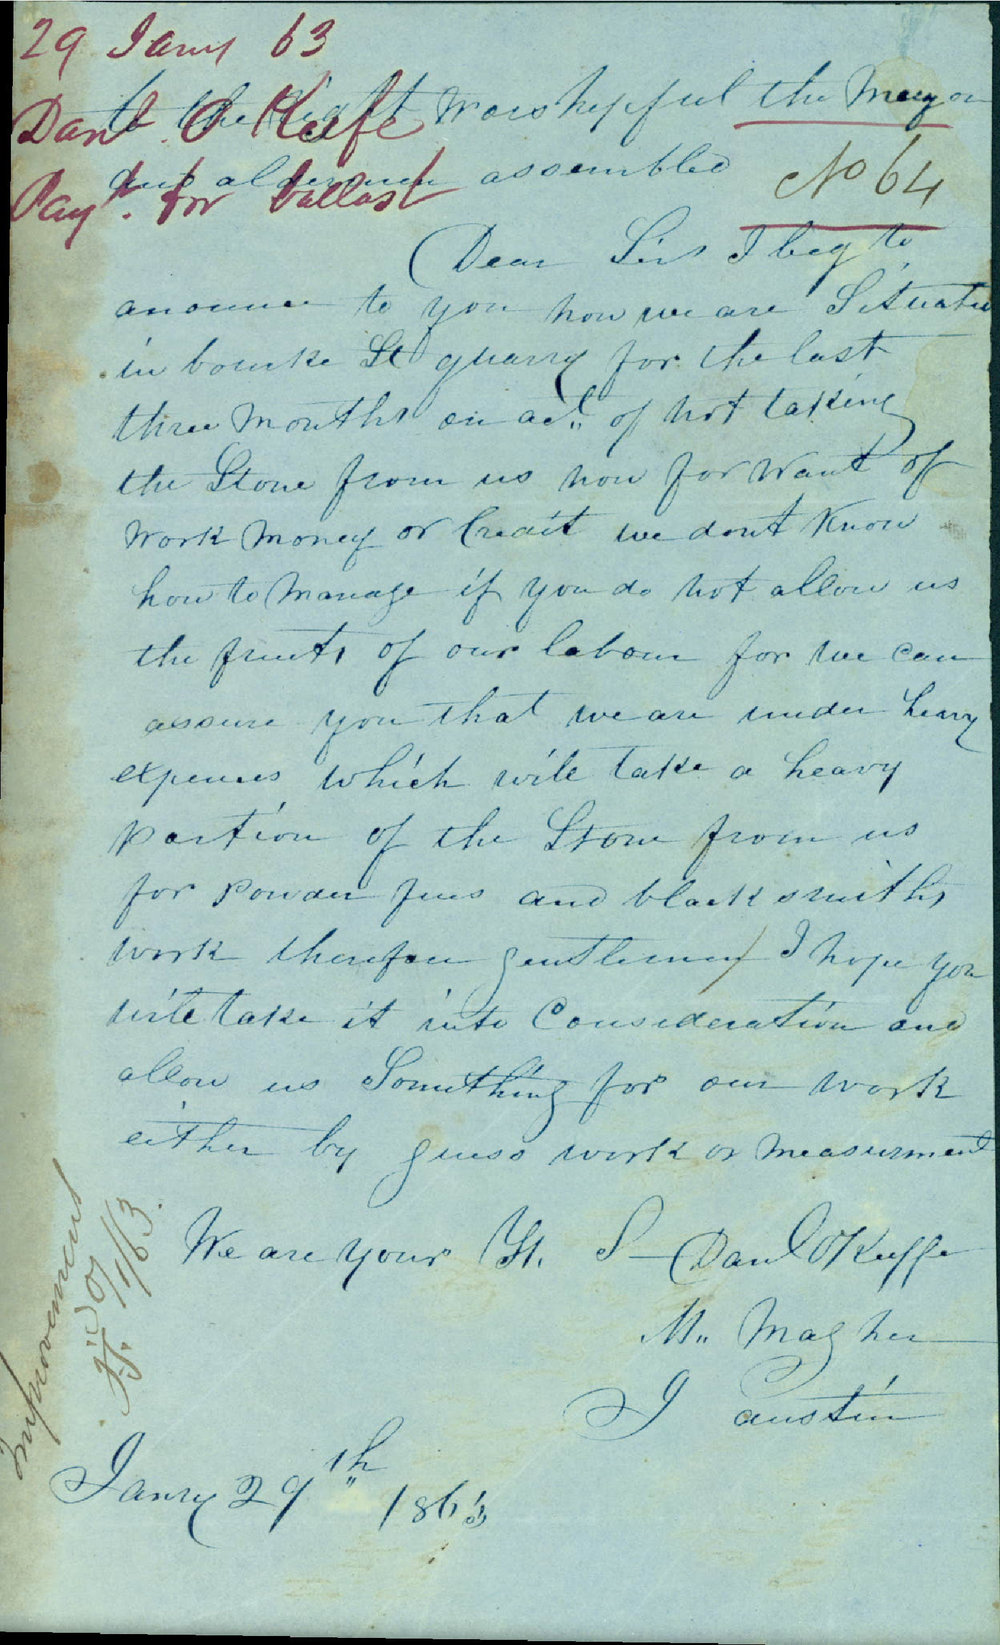 29 Jany 63
Danl. O Keefe
Payt. for ballast
to the Right Worshipful the Mayor
and aldermen assembled
No 64
Dear Sirs I beg to
anounce to you how we are Situated
in bourke St quarry for the last
three Months on act. of not taking
the Stone from us now for want of
work Money or Credit we dont Know
how to Manage if you do not allow us
the fruits of our labour for we can
assure you that we are under heavy
expences which wile take a heavy
portion of the Stone from us
for powder fues and black smiths
work therefore gentlemen I hope you
wile take it into Consideration and
allow us Something for our work
either by guess work or measurment
We are your St. S Danl OKeeffe
M. Magher
J austin
Janry 29th 1863
Improvement